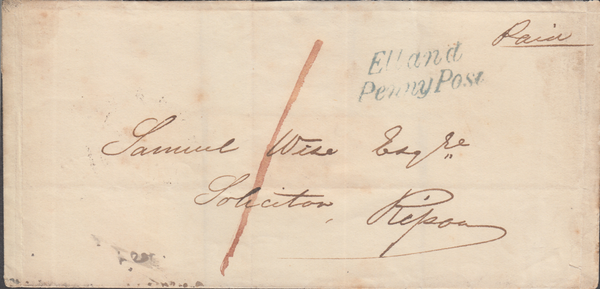 Paid
Elland
Penny Post
Samuel Wise Esqre
Solicitor, Ripon